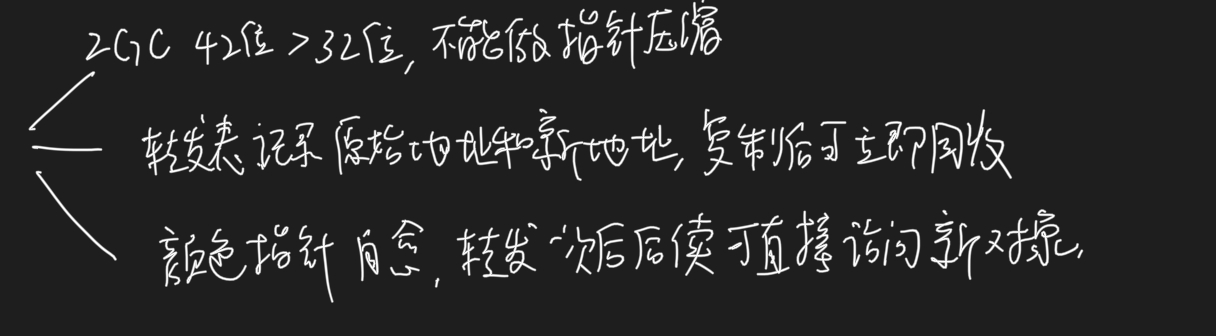 ZGC 42位>32位,不能做指针压缩
转发表记录原始地址和新地址,复制后可立即回收
颜色指针自愈,转发一次后后续可直接访问新对象.